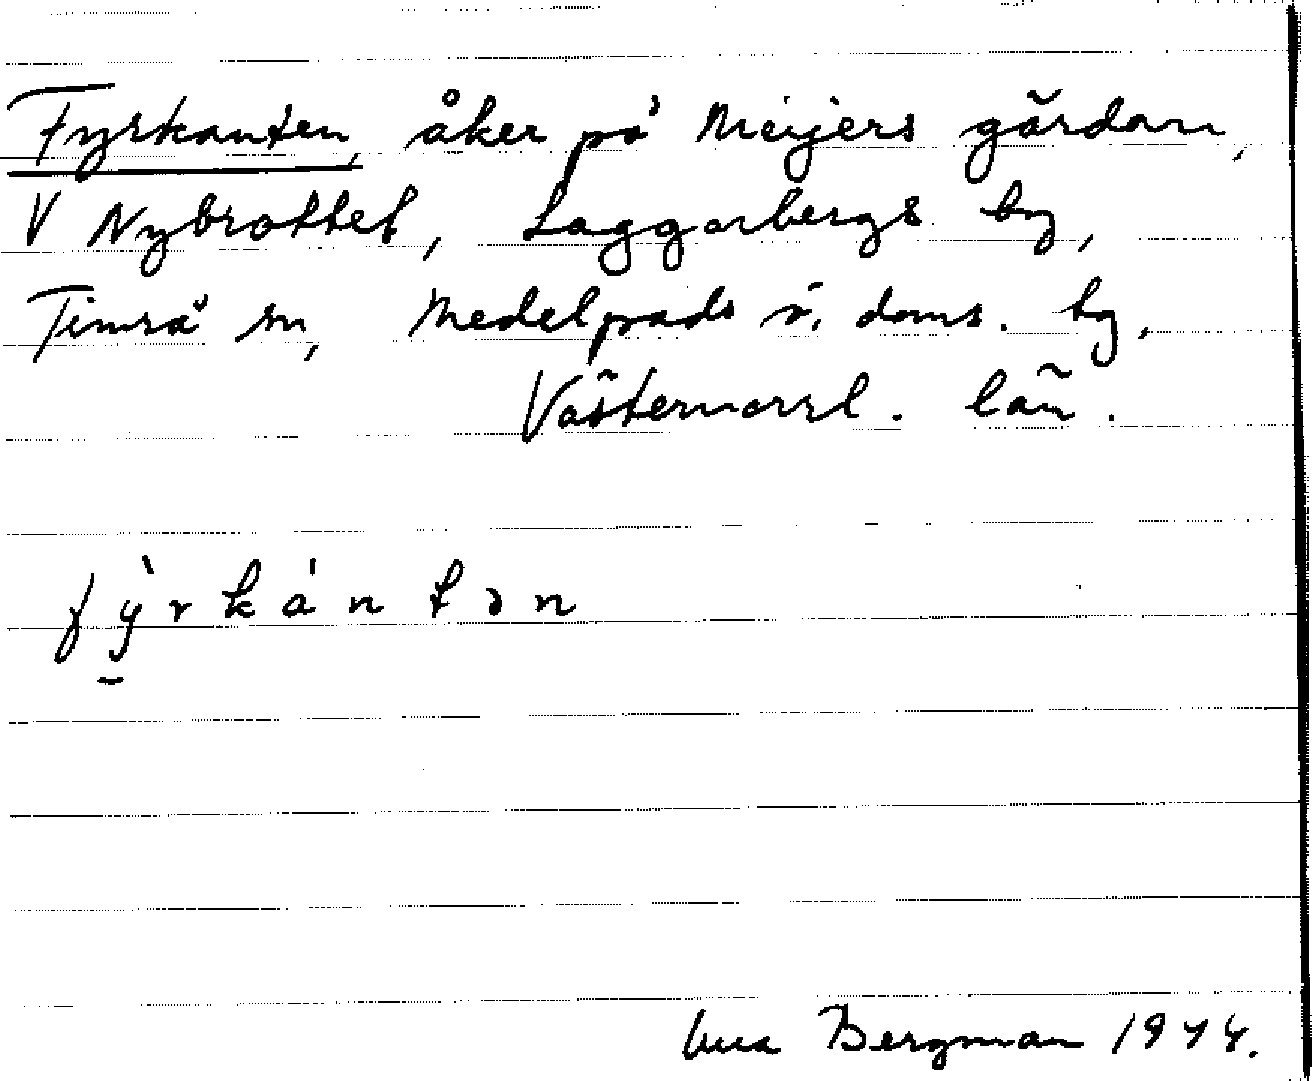 Fyrkanten, åker på Meijers gården,
V Nybrottet, Laggarbergs by,
Timrå sn, Medelpads v. doms. by,
Västernorrl. län.
fy̆̀rkán tən
Bergman 1974.